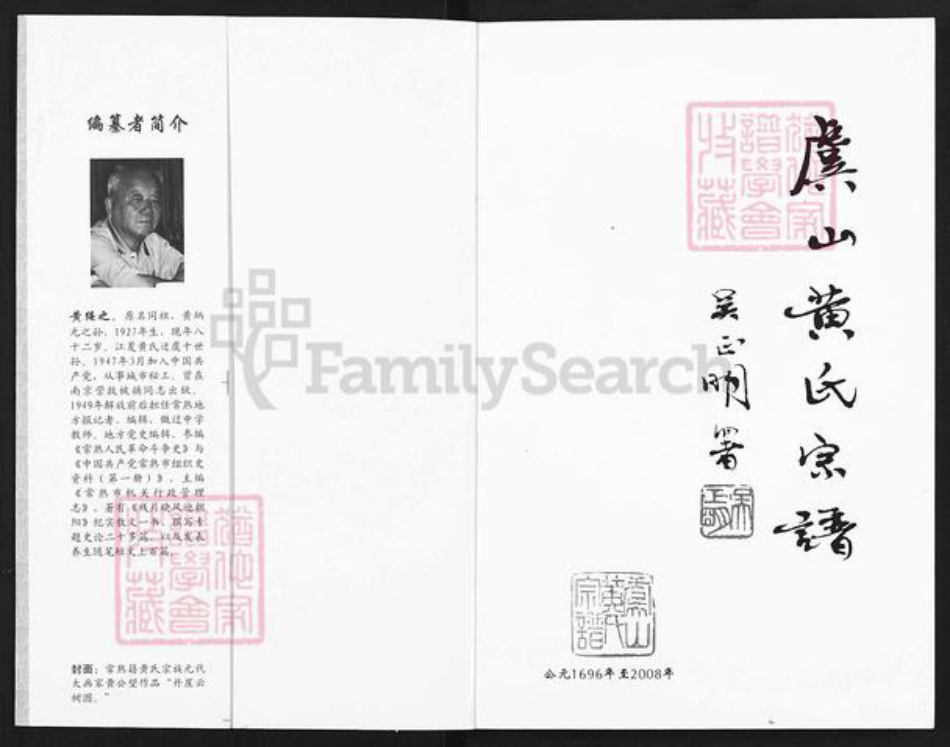 编纂者简介
黄绳之，原名同祖，黄炳
元之孙，1927年生，现年八
十二岁，江夏黄氏迁虞十世
孙，1947年3月加入中国共
产党，从事城市秘工，曾在
南京营救被捕同志出狱，
1949年解放前后担任常熟地
方报记者、编辑，做过中学
教师、地方党史编辑，参编
《常熟人民革命斗争史》与
《中国共产党常熟市组织史
资料（第一册）》，主编
《常熟市机关行政管理
志》，著有《残月晓风迎朝
阳》纪实散文一书，撰写专
题史论二十多篇，以及发表
养生随笔短文上百篇。
封面：常熟籍黄氏宗族元代
大画家黄公望作品“丹崖云
树图。”
虞山黄氏宗譜
吴正明署
虞山黄氏宗譜
公元1696年至2008年
FamilySearch